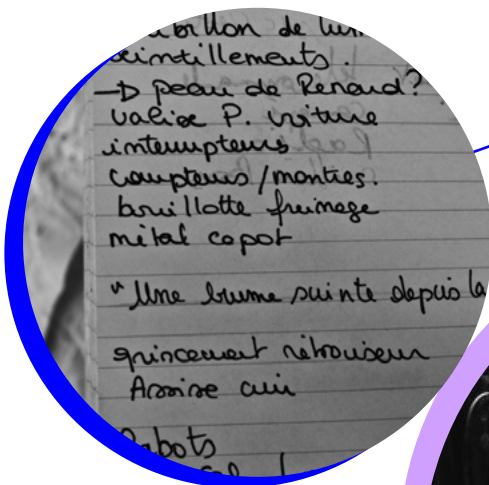 de
scintillements.
→ peau de Renard?
valise P. voiture
interrupteurs
compteurs/montres.
bouillotte freinage
métal capot
"Une brume suinte depuis la
grincement rétroviseur
Assise cuir
Robots